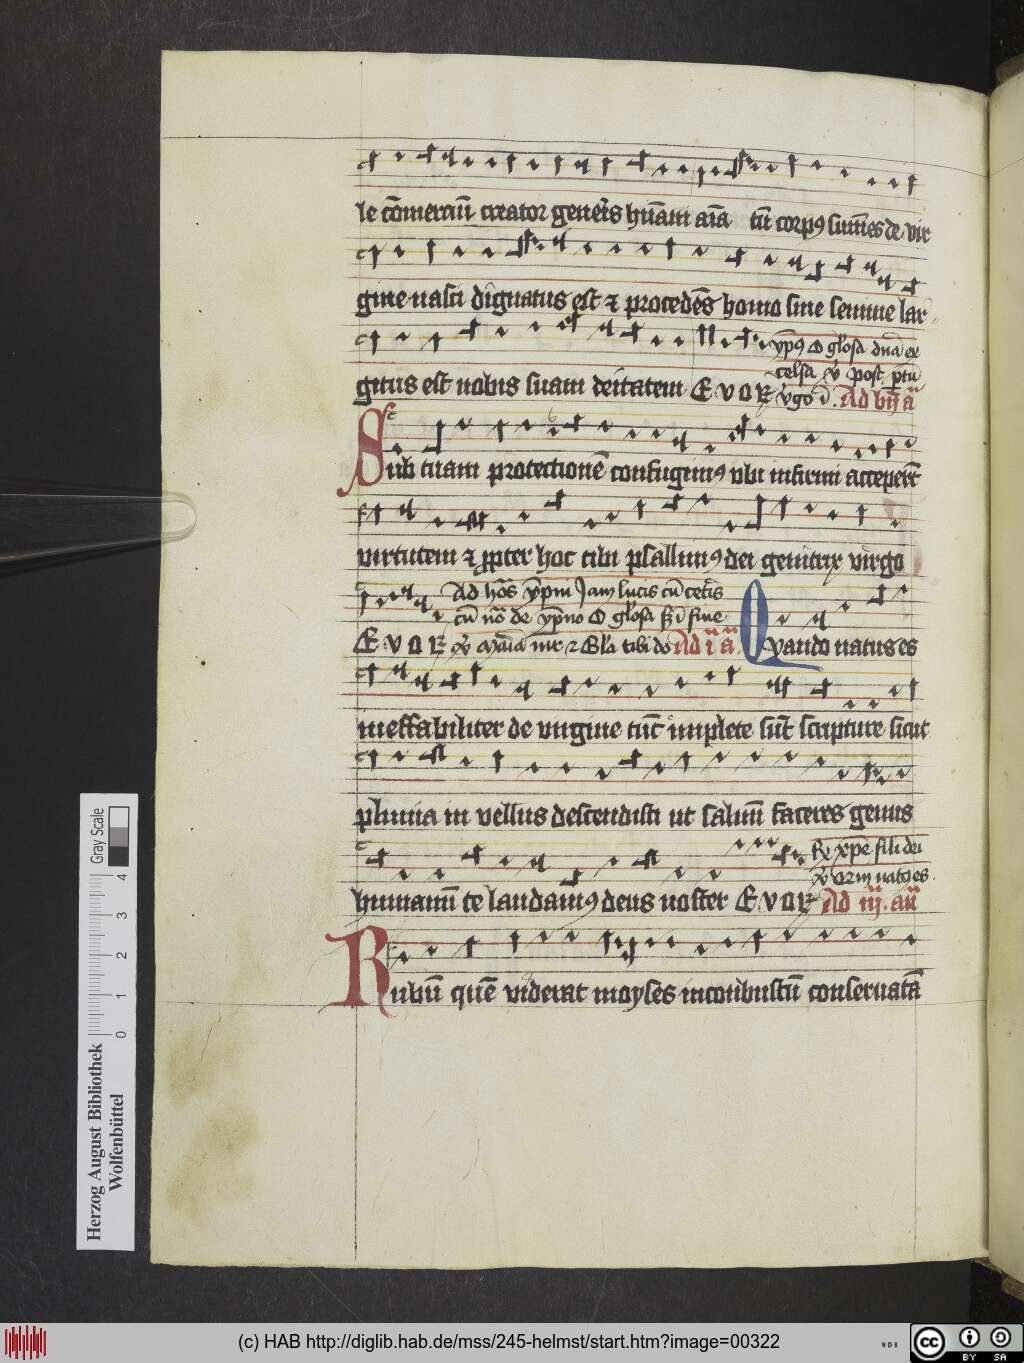 le co̅merciu̅ creator gener̅is hu̅ani ai̅a tu̅ corpꝰ sumes de vir
gine nasci dignatus est ⁊ procede̅s homo sine semine lar
gitus est nobis suam deitatem E v o v ympꝰ O glosa dn̅a ex
celsa v̅ post p̅tu̅
v̅go i̅. Ad bn̅
Sub tuam protectione̅ confugimꝰ vbi infirmi acceperu̅t
virtutem ⁊ propter hoc tibi psallimꝰ dei genitrix virgo
Ad ho̅s y̅pm Jam lucis cu̅ cet̅is
cu̅ no̅ de y̅pno O gl̅osa fine
E v o v Gl̅a tibi do Ad i a̅
Quando natus es
ineffabiliter de virgine tu̅c implete su̅t scripture sicut
pluuia in vellus descendisti ut saluu̅ faceres genus
R̅ xp̅e fili dei
v̅ natꝰ es
humanu̅ te laudamꝰ deus noster E v o v Ad iij. an̅
Rubu̅ que̅ viderat moyses inconbustu̅ conseruata̅
Gray Scale
0 1 2 3 4
Herzog August Bibliothek
Wolfenbüttel
(c) HAB http://diglib.hab.de/mss/245-helmst/start.htm?image=00322
WDB
cc BY SA